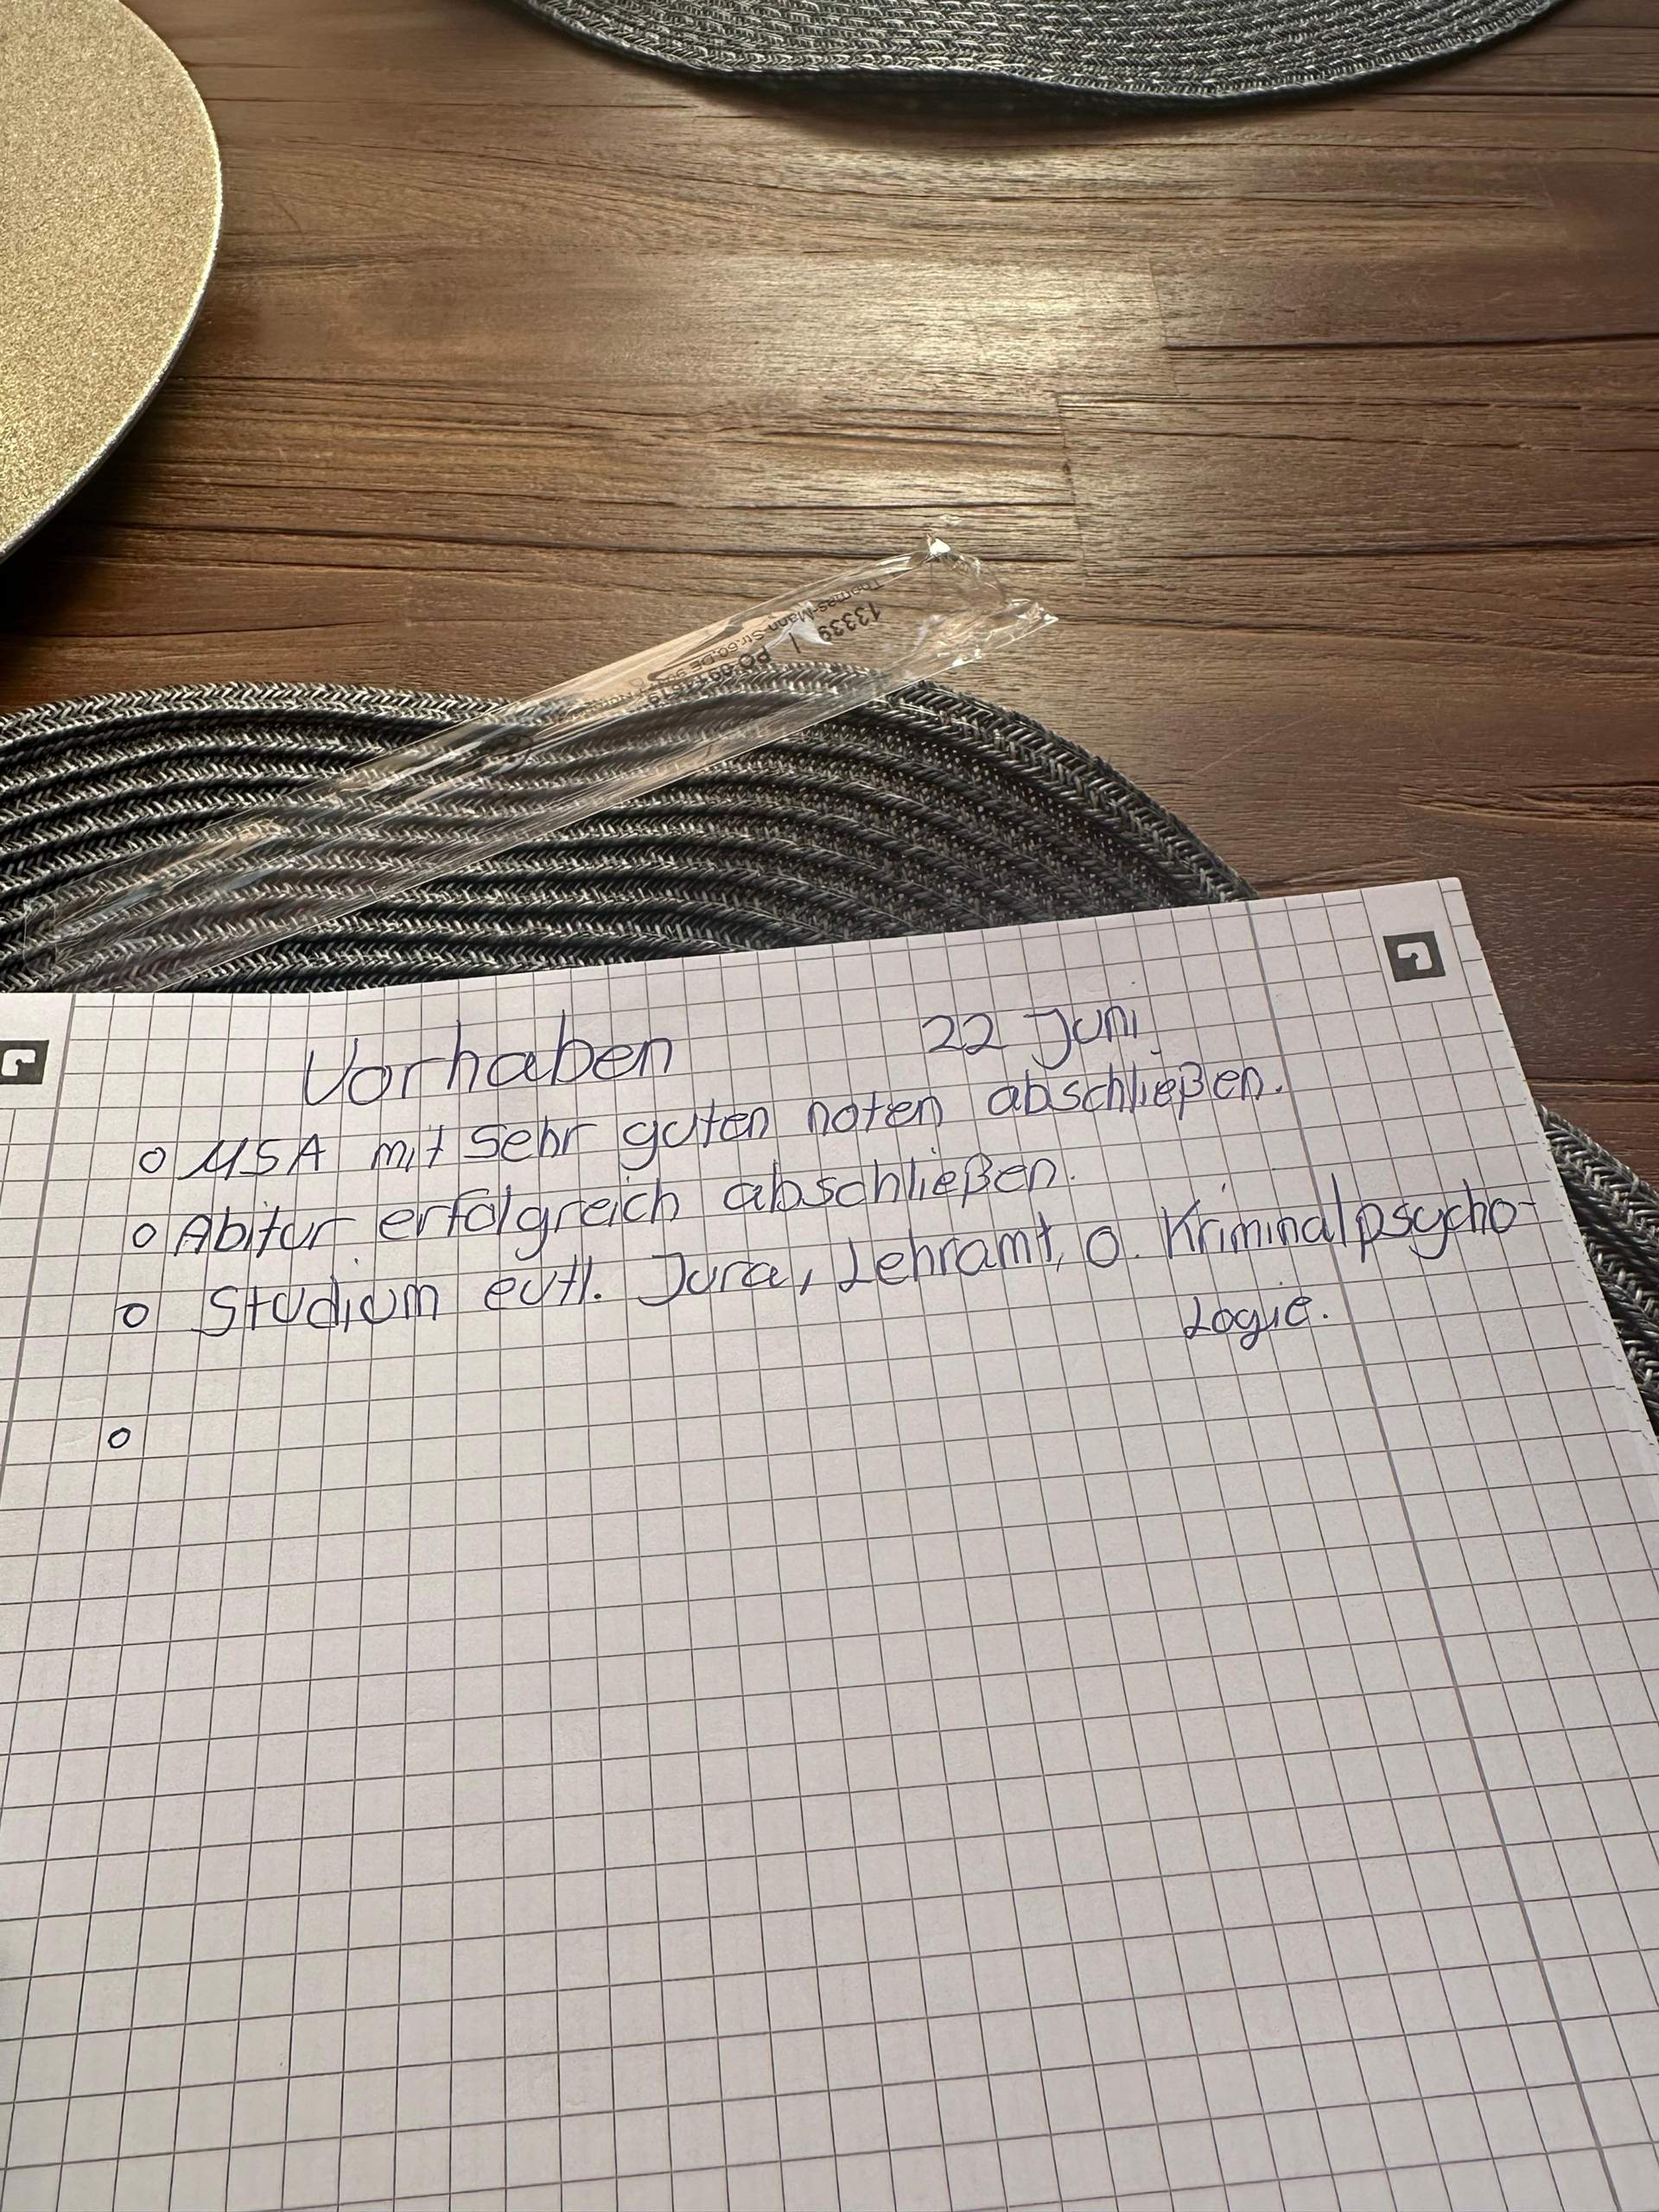 Thomas-Mann-Str.60,DE
13339
Vorhaben 22 Juni
o MSA mit sehr guten noten abschließen.
o Abitur erfolgreich abschließen.
o Studium evtl. Jura, Lehramt, o. Kriminalpsycho-
Logie.
o